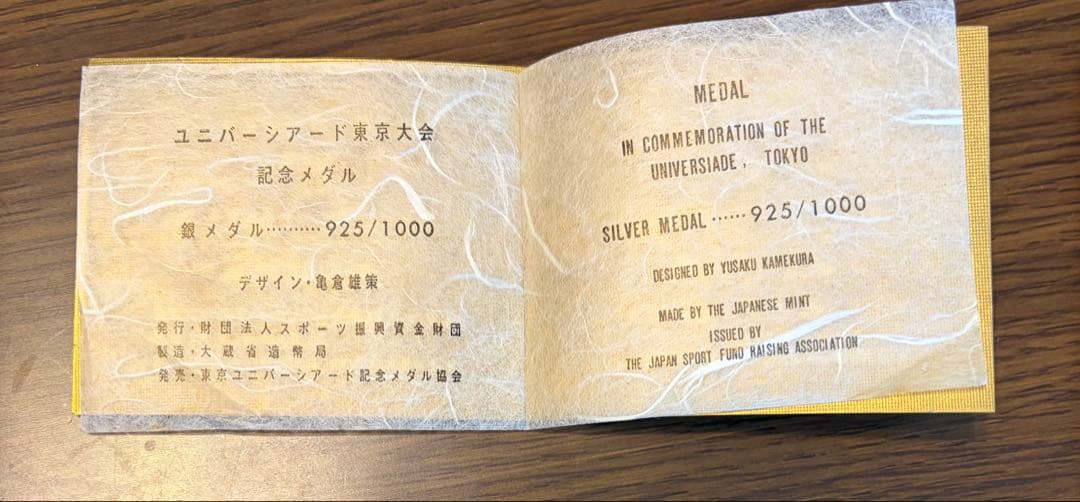 ユニバーシアード東京大会
記念メダル
銀メダル……….925/1000
デザイン・亀倉雄策
発行・財団法人スポーツ振興資金財団
製造・大蔵省造幣局
発売・東京ユニバーシアード記念メダル協会
MEDAL
IN COMMEMORATION OF THE
UNIVERSIADE, TOKYO
SILVER MEDAL……925/1000
DESIGNED BY YUSAKU KAMEKURA
MADE BY THE JAPANESE MINT
ISSUED BY
THE JAPAN SPORT FUND RAISING ASSOCIATION